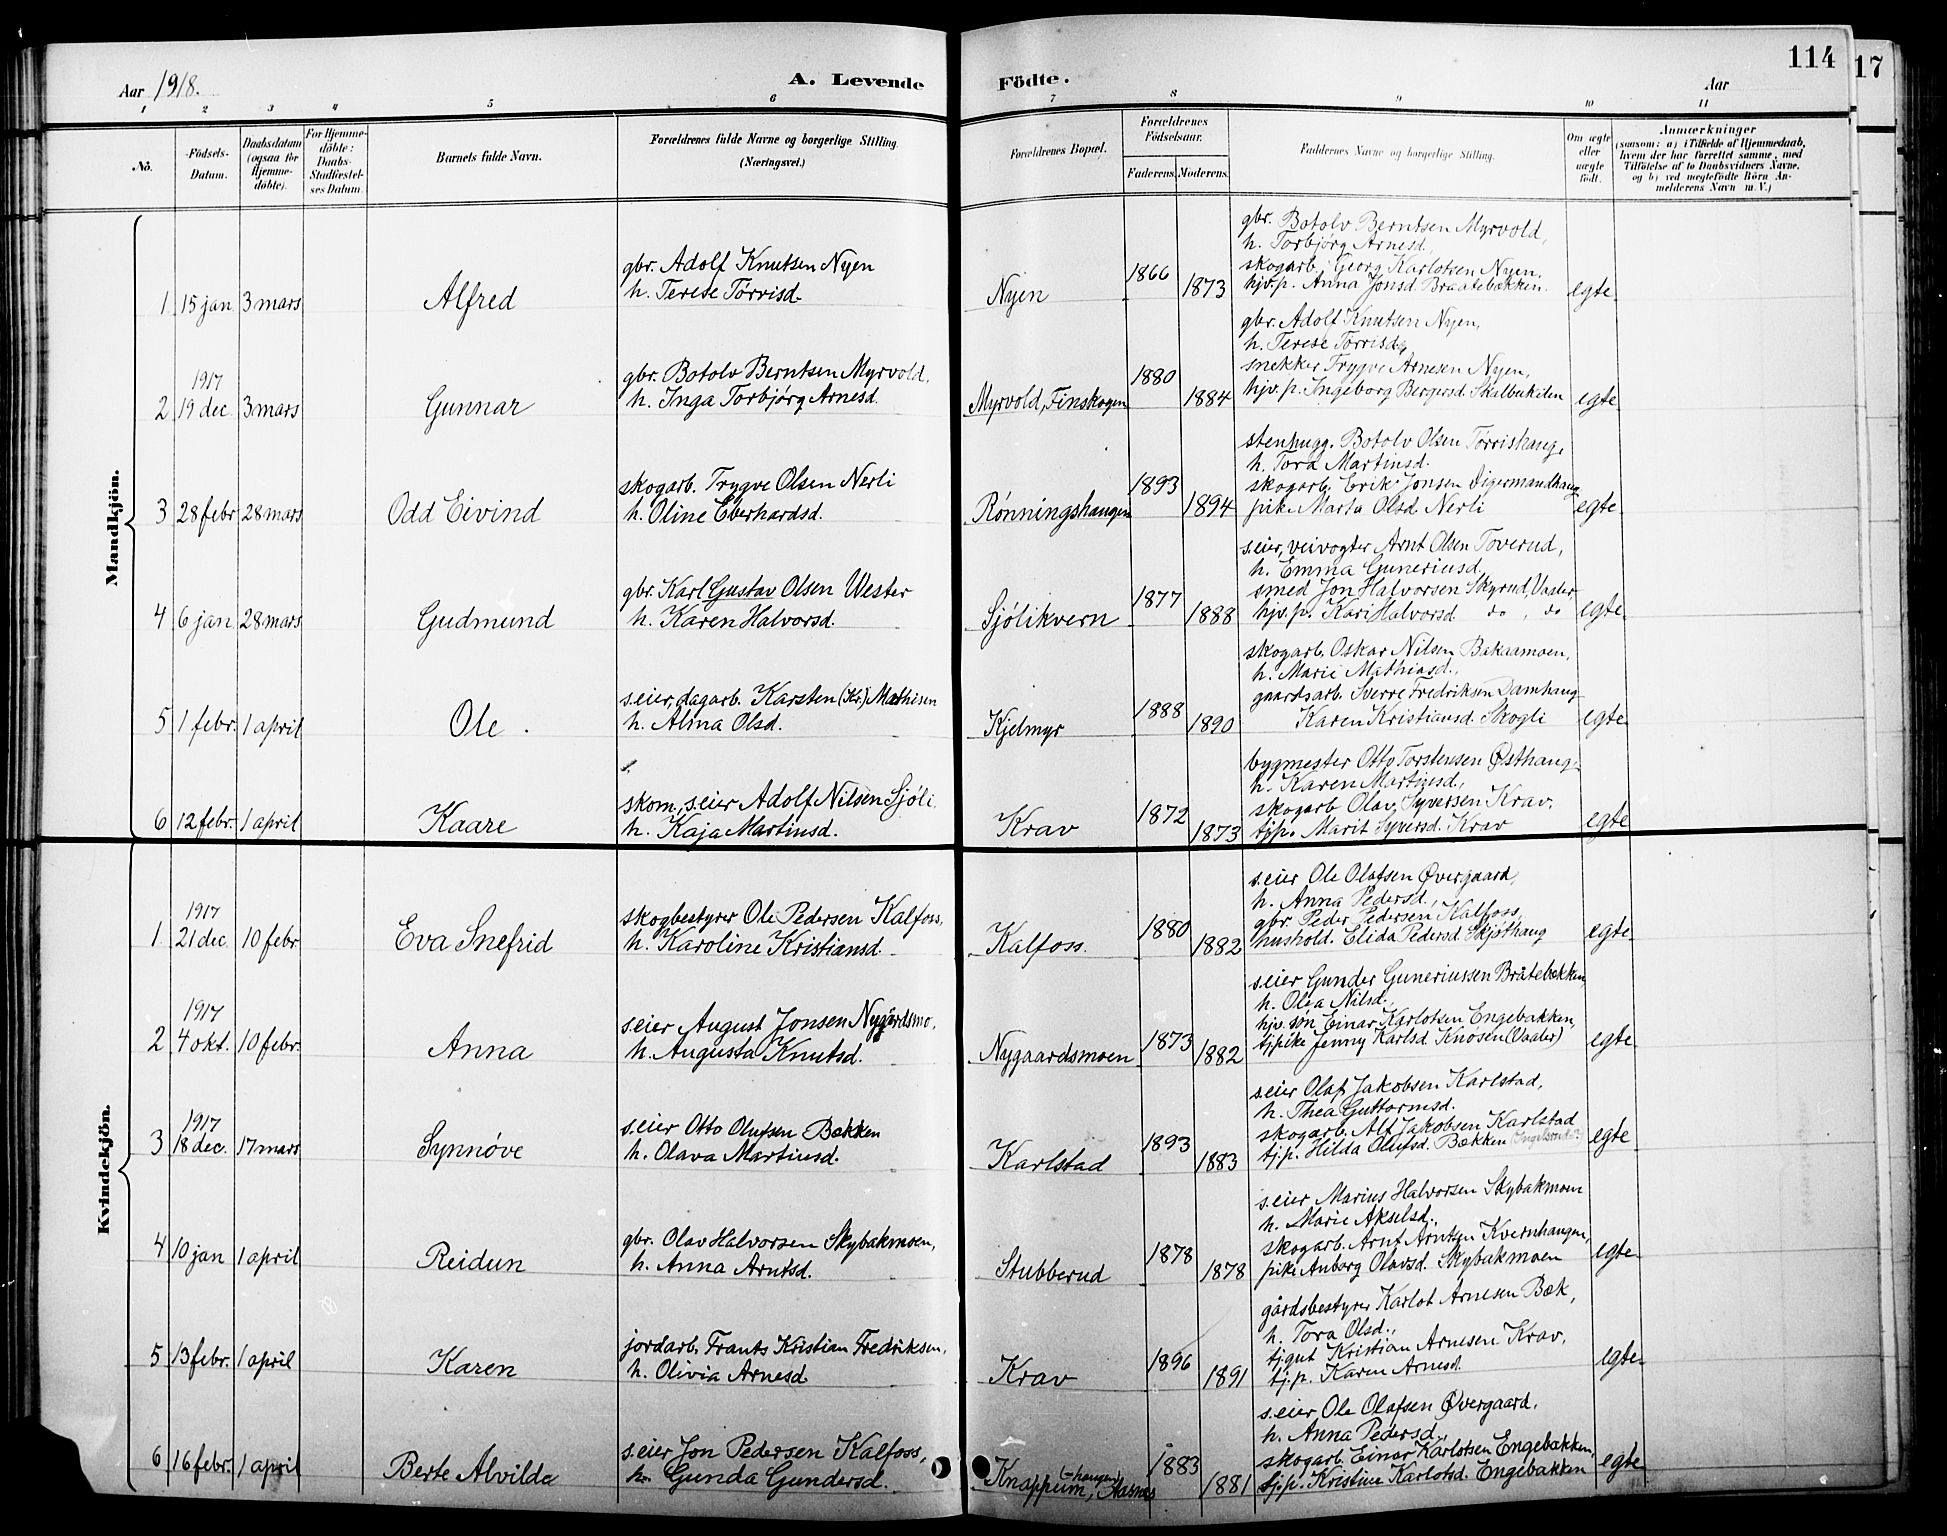 114
17
Aar 1918. A. Levende Födte. Aar
1 2 3 4 5 6 7 8 9 10 11
No.
Födsels-Datum.
Daabsdatum (ogsaa for Hjemmedöbte).
For Hjemmedöbte: Daabs-Stadfestelses Datum.
Barnets fulde Navn.
Forældrenes fulde Navne og borgerlige Stilling. (Næringsvei.)
Forældrenes Bopæl.
Forældrenes Födselsaar.
Faderens. Moderens.
Faddernes Navne og borgerlige Stilling.
Om ægte eller uægte født.
Anmærkninger
(saasom: a) i Tilfælde af Hjemmedaab, hvem der har forrettet samme, med Tilföielse af to Daabsvidners Navne, og b) ved uægtefödte Börn Anmelderens Navn m. V.)
Mandkjön.
1 15 jan 3 mars Alfred
gbr. Adolf Knutsen Nyen
h. Terese Tørrisd.
Nyen 1866 1873
gbr. Botolv Berntsen Myrvold,
h. Torbjørg Arnesd.,
skogarb. Georg Karlotsen Nyen,
hjv.p. Anna Jonsd. Braatebækken.
egte
2 1917 19 dec. 3 mars Gunnar
gbr. Botolv Berntsen Myrvold,
h. Inga Torbjørg Arnesd.
Myrvold, Finskogen 1880 1884
gbr. Adolf Knutsen Nyen,
h. Terese Tørrisd.,
snekker Trygve Arnesen Nyen,
hjv.p. Ingeborg Bergersd. Skalbukilen
egte
3 28 febr 28 mars Odd Eivind
skogarb. Trygve Olsen Nerli
h. Oline Eberhardsd.
Rønningshaugen 1893 1894
stenhugg. Botolv Olsen Tørrishaug,
h. Tora Martinsd.
skogarb. Erik Jonsen Digermandhaug
pike Marta Olsd. Nerli
egte
4 6 jan 28 mars Gudmund
gbr. Karl Gustav Olsen Wester
h. Karen Halvorsd.
Sjølikvern 1877 1888
s.eier, veivogter Arnt Olsen Toverud,
h. Emma Guneriusd.
smed Jon Halvorsen Skyrud, Vaaler
hjv.p. Kari Halvorsd do , do
egte
5 1 febr. 1 april Ole
s.eier, dagarb. Karsten (Kr.) Mathisen
h. Alma Olsd.
Kjelmyr 1888 1890
skogarb. Oskar Nilsen Bakaamoen,
h. Marie Mathiasd.,
gaardsarb. Sverre Fredriksen Damhaug
Karen Kristiansd. Skogli
egte
6 12 febr. 1 april Kaare
skom., s.eier Adolf Nilsen Sjøli
h. Kaja Martinsd.
Krav 1872 1873
bygmester Otto Torstensen Østhaug
h. Karen Martinsd.,
skogarb. Olav Syversen Krav,
tj.p. Marit Syversd. Krav
egte
Kvindekjön.
1 1917 21 dec. 10 febr. Eva Snefrid
skogbestyrer Ole Pedersen Kalfoss,
h. Karoline Kristiansd.
Kalfoss. 1880 1882
s.eier Ole Olafsen Øvergaard,
h. Anna Pedersd.,
gbr Peder Pedersen Kalfoss,
hushold. Elida Pedersd. Skjøthaug
egte
2 1917 4 okt. 10 febr. Anna
s.eier August Jonsen Nygårdsmo,
h. Augusta Knutsd.
Nygaardsmoen 1873 1882
s.eier Gunder Guneriussen Bråtebækken
h. Olea Nilsd.,
hjv. søn Einar Karlotsen Engebakken,
tj.pike Jenny Karlsd Knøsen (Vaaler)
egte
3 1917 18 dec. 17 mars Synnøve
s.eier Otto Olufsen Bækken
h. Olava Martinsd.
Karlstad 1893 1883
s.eier Olaf Jakobsen Karlstad,
h. Thea Guttormsd.
skogarb. Alf Jakobsen Karlstad
tj.p. Hilda Olufsd. Bækken
egte
4 10 jan 1 april Reidun
gbr. Olav Halvorsen Skybakmoen,
h. Anna Arntsd.
Stubberud 1878 1878
s.eier Marius Halvorsen Skybakmoen
h. Marie Akselsd.,
skogarb. Arnt Arntsen Kvernhaugen,
pike Anborg Olavsd. Skybakmoen
egte
5 13 febr. 1 april Karen
jordarb. Frants Kristian Fredriksen,
h. Olivia Arnesd.
Krav 1896 1891
gårdsbestyrer Karlot Arnesen Bæk,
h. Tora Olsd.,
tj.gut Kristian Arnesen Krav,
tj.p. Karen Arnesd.
egte
6 16 febr. 1 april Berte Alvilda
s.eier Jon Pedersen Kalfoss,
h. Gunda Gundersd.
Knappum (-haugen), Aasnes 1883 1881
s.eier Ole Olafsen Øvergaard,
h. Anna Pedersd.,
skogarb. Einar Karlotsen Engebakken,
tj.p. Kristine Karlotsd. Engebakken
egte